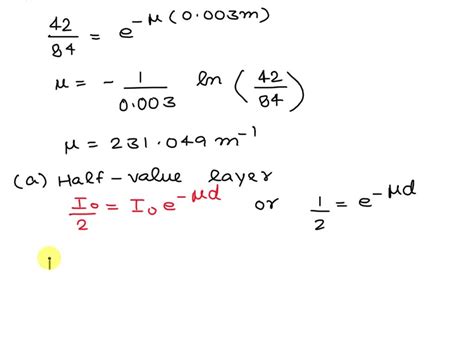 42/84 = e^-μ(0.003m)
μ = - 1/0.003 ln (42/84)
μ = 231.049 m^-1
(a) Half-value layer
I₀/2 = I₀ e^-μd or 1/2 = e^-μd